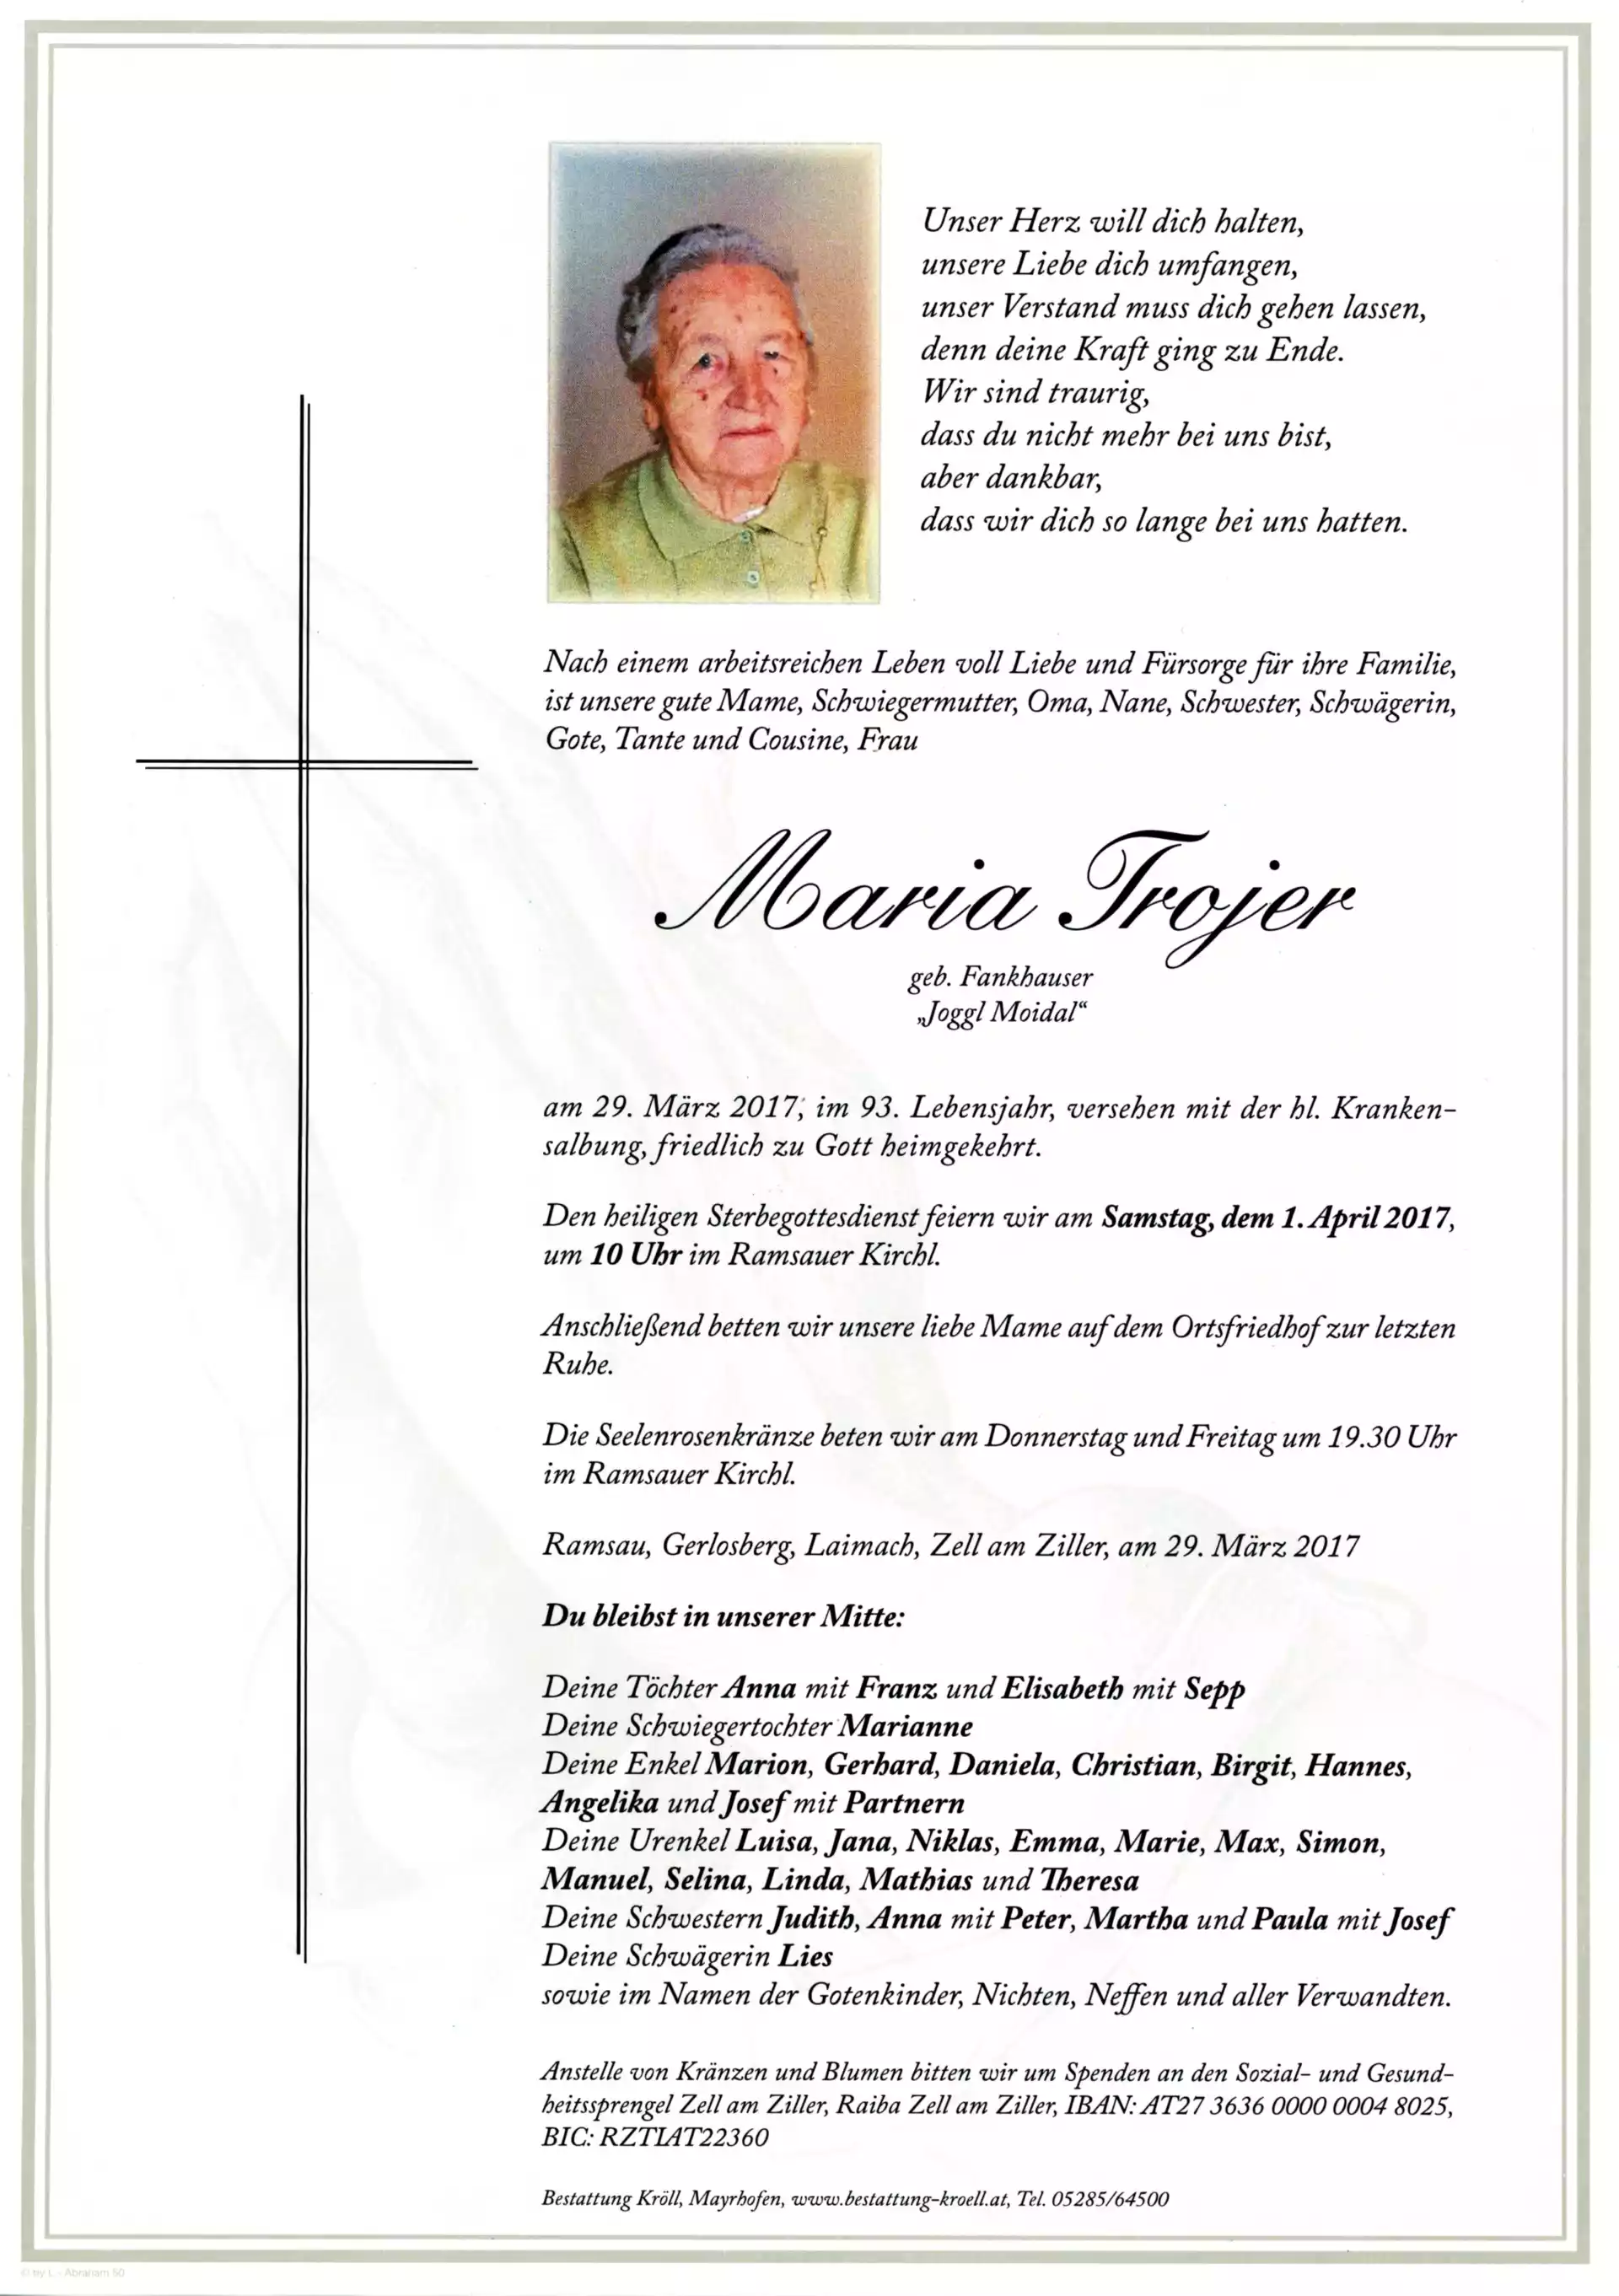 Unser Herz will dich halten,
unsere Liebe dich umfangen,
unser Verstand muss dich gehen lassen,
denn deine Kraft ging zu Ende.
Wir sind traurig,
dass du nicht mehr bei uns bist,
aber dankbar,
dass wir dich so lange bei uns hatten.
Nach einem arbeitsreichen Leben voll Liebe und Fürsorge für ihre Familie,
ist unsere gute Mame, Schwiegermutter, Oma, Nane, Schwester, Schwägerin,
Gote, Tante und Cousine, Frau
Maria Trojer
geb. Fankhauser
„Joggl Moidal“
am 29. März 2017, im 93. Lebensjahr, versehen mit der hl. Kranken-
salbung, friedlich zu Gott heimgekehrt.
Den heiligen Sterbegottesdienst feiern wir am Samstag, dem 1. April 2017,
um 10 Uhr im Ramsauer Kirchl.
Anschließend betten wir unsere liebe Mame auf dem Ortsfriedhof zur letzten
Ruhe.
Die Seelenrosenkränze beten wir am Donnerstag und Freitag um 19.30 Uhr
im Ramsauer Kirchl.
Ramsau, Gerlosberg, Laimach, Zell am Ziller, am 29. März 2017
Du bleibst in unserer Mitte:
Deine Töchter Anna mit Franz und Elisabeth mit Sepp
Deine Schwiegertochter Marianne
Deine Enkel Marion, Gerhard, Daniela, Christian, Birgit, Hannes,
Angelika und Josef mit Partnern
Deine Urenkel Luisa, Jana, Niklas, Emma, Marie, Max, Simon,
Manuel, Selina, Linda, Mathias und Theresa
Deine Schwestern Judith, Anna mit Peter, Martha und Paula mit Josef
Deine Schwägerin Lies
sowie im Namen der Gotenkinder, Nichten, Neffen und aller Verwandten.
Anstelle von Kränzen und Blumen bitten wir um Spenden an den Sozial- und Gesund-
heitssprengel Zell am Ziller, Raiba Zell am Ziller, IBAN: AT27 3636 0000 0004 8025,
BIC: RZTIAT22360
Bestattung Kröll, Mayrhofen, www.bestattung-kroell.at, Tel. 05285/64500
© by L - Abraham 50